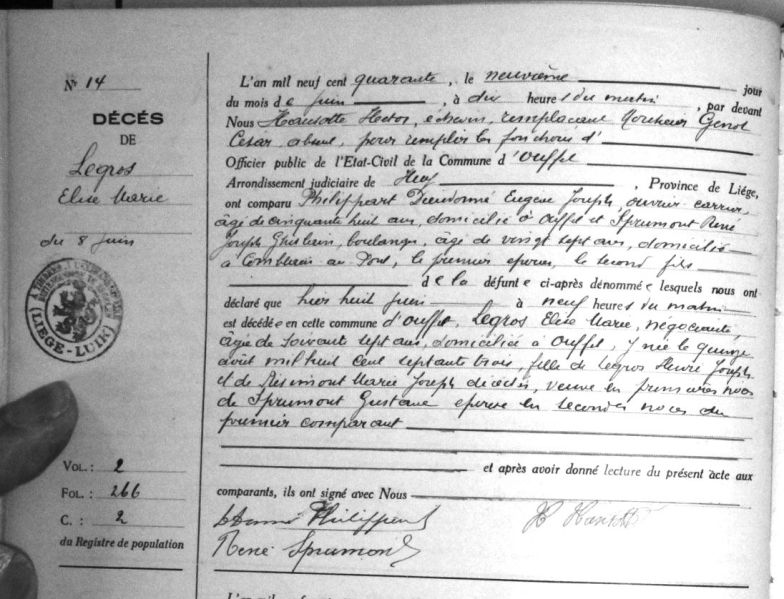 N° 14
DÉCÉS
DE
Legros
Elise Marie
du 8 juin
LIÉGE-LUIK
VOL. : 2
FOL. : 266
C. : 2
du Registre de population
L'an mil neuf cent quarante, le neuvième jour
du mois de juin, à dix heures du matin, par devant
Nous Hansotte Hector, échevin, remplaçant Monsieur Genot
César absent, pour remplir les fonctions d'
Officier public de l'Etat-Civil de la Commune d'Ouffet
Arrondissement judiciaire de Huy, Province de Liége,
ont comparu Philippart Dieudonné Eugène Joseph ouvrier carrier,
âgé de cinquante huit ans, domicilié à Ouffet et Sprumont René
Joseph Ghislain, boulanger, âgé de vingt sept ans, domicilié
à Comblain au Pont, le premier époux, le second fils
de la défunte ci-après dénommée lesquels nous ont
déclaré que hier huit juin à neuf heures du matin
est décédée en cette commune d'Ouffet, Legros Elise Marie, négociante,
âgée de soixante sept ans, domiciliée à Ouffet, y née le quinze
août mil huit cent septante trois, fille de Legros Henri Joseph
et de Résimont Marie Joseph décédés, veuve en premières noces
de Sprumont Gustave épouse en secondes noces du
premier comparant
et après avoir donné lecture du présent acte aux
comparants, ils ont signé avec Nous
Philippart
H Hansotte
René Sprumont